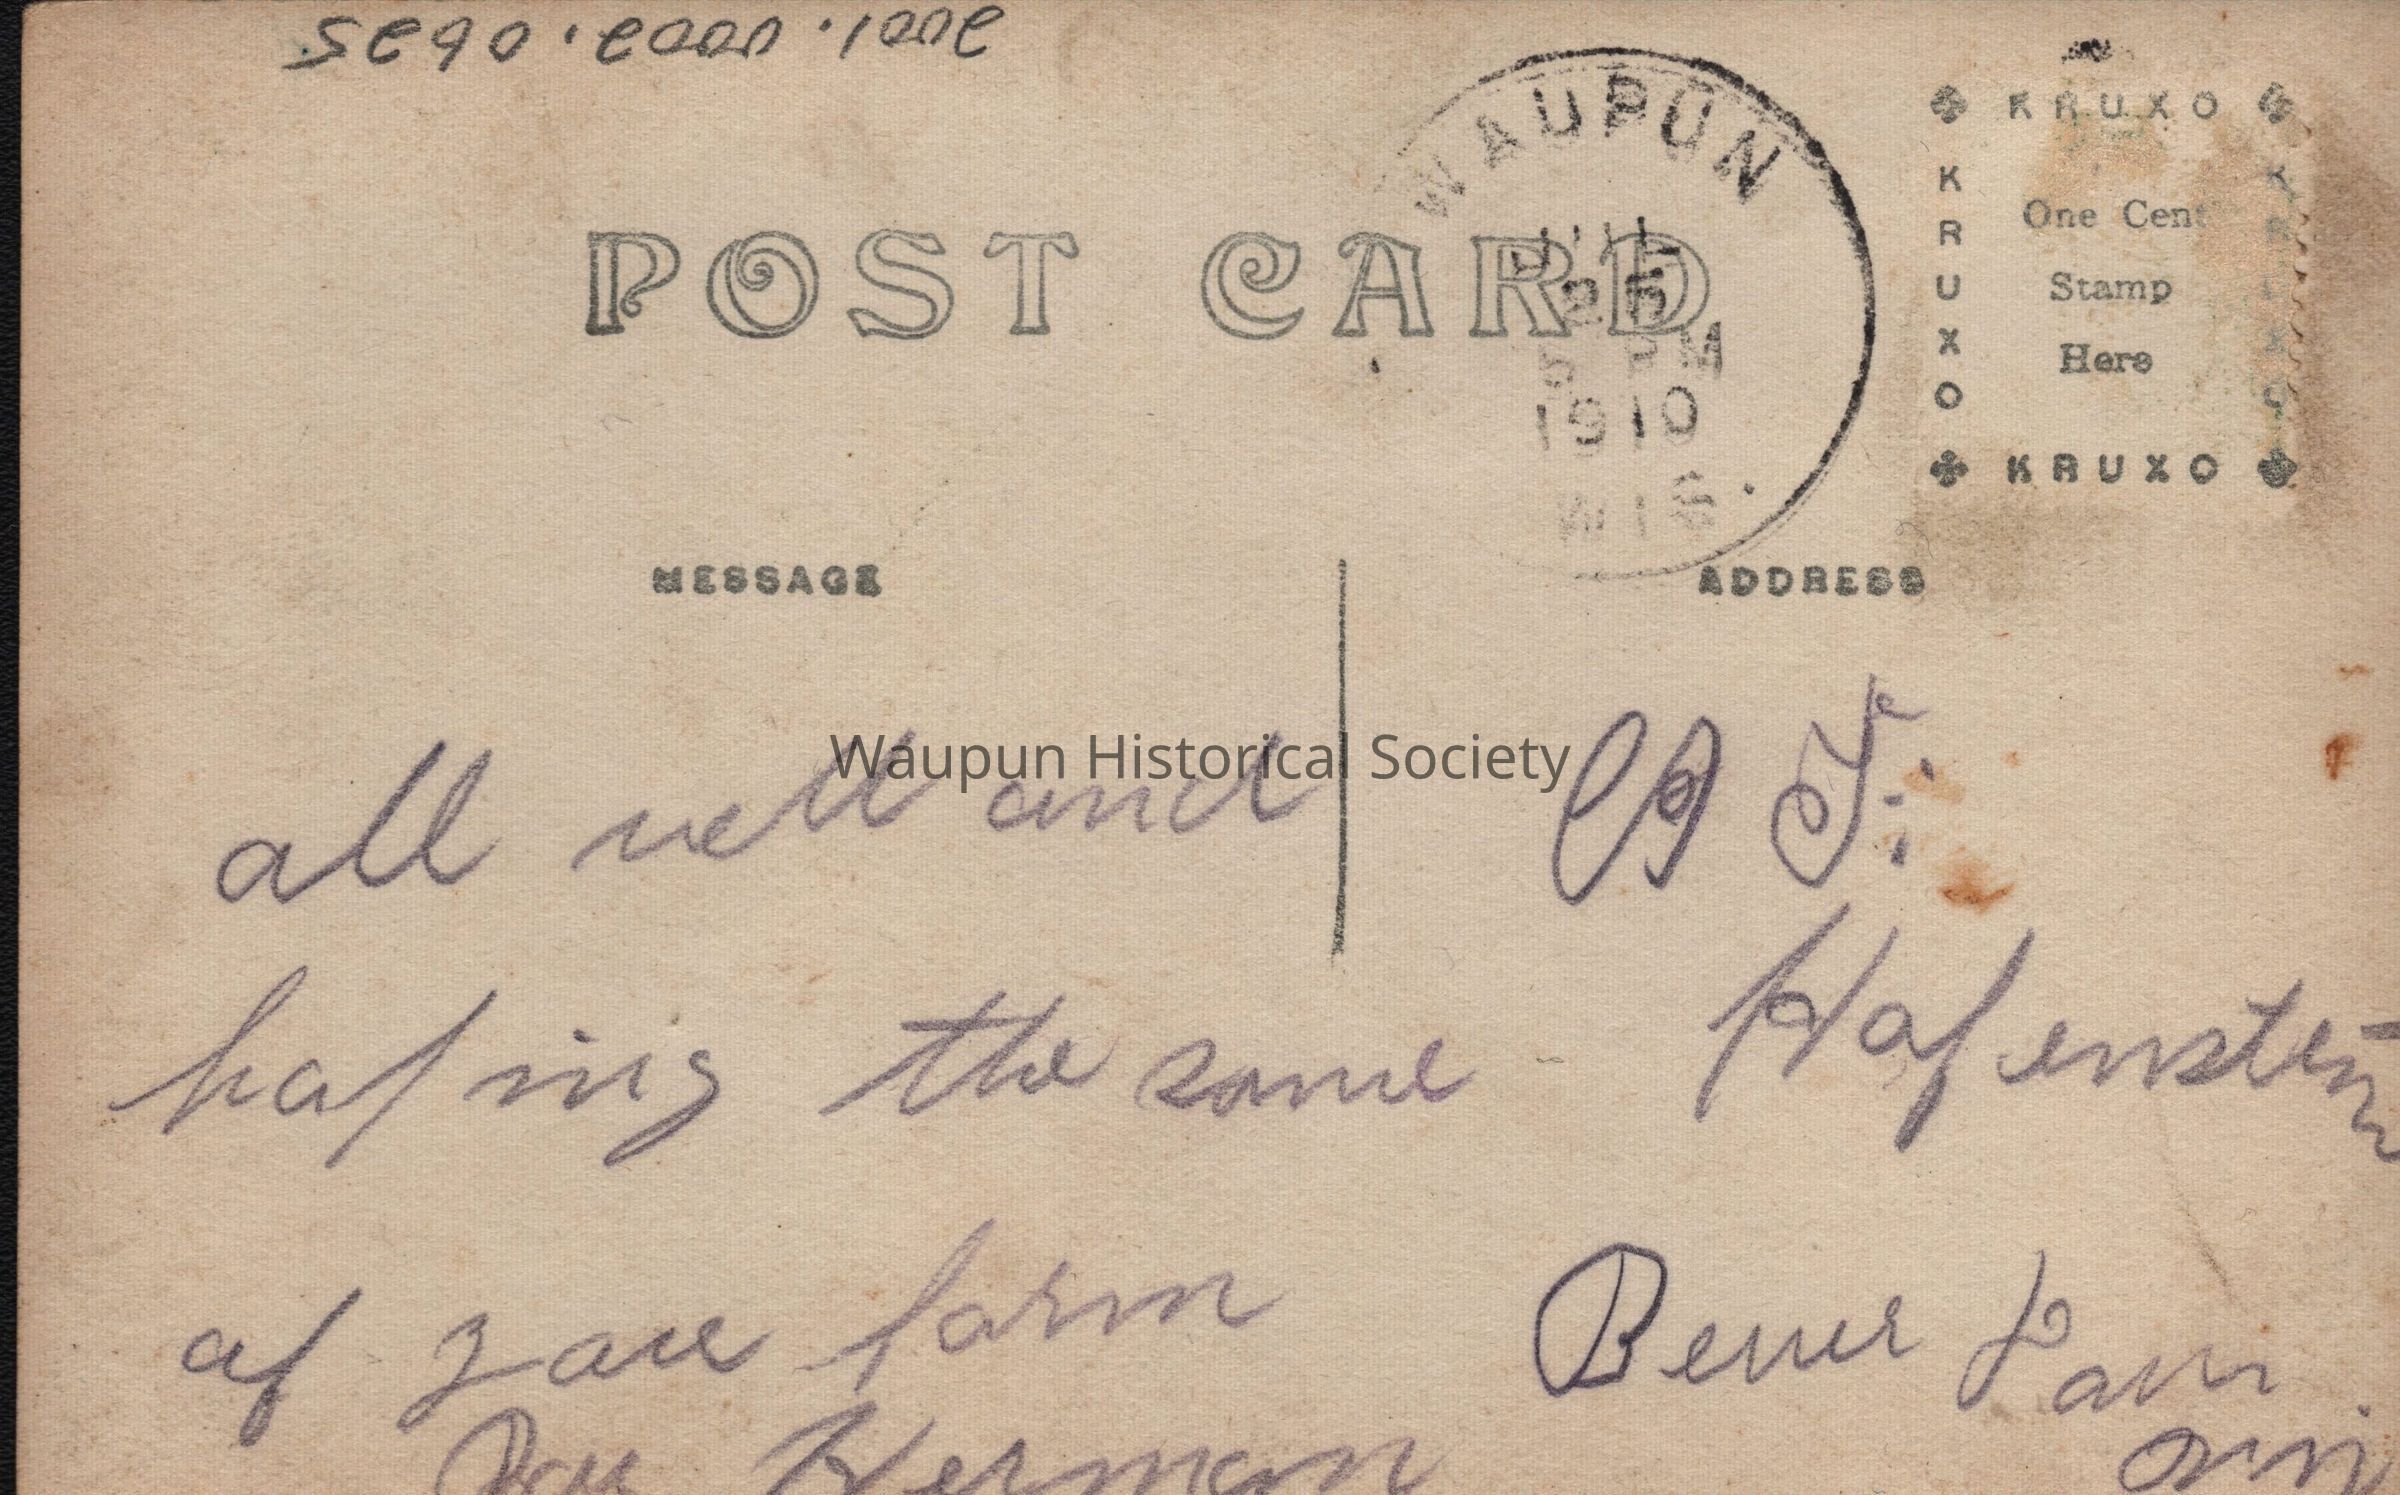 2001.0002.0625
WAUPUN
JUL
25
5 PM
1910
WIS.
KRUXO
KRUXO
KRUXO
KRUXO
One Cent
Stamp
Here
POST CARD
MESSAGE
ADDRESS
Waupun Historical Society
all well and
hafing the same
af your farm
Herman
Hafenstein
Bever Dam